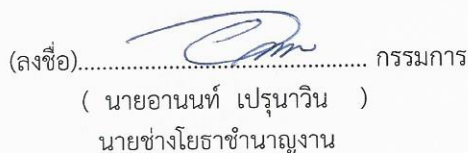 (ลงชื่อ)............................................... กรรมการ
( นายอานนท์ เปรุนาวิน )
นายช่างโยธาชำนาญงาน